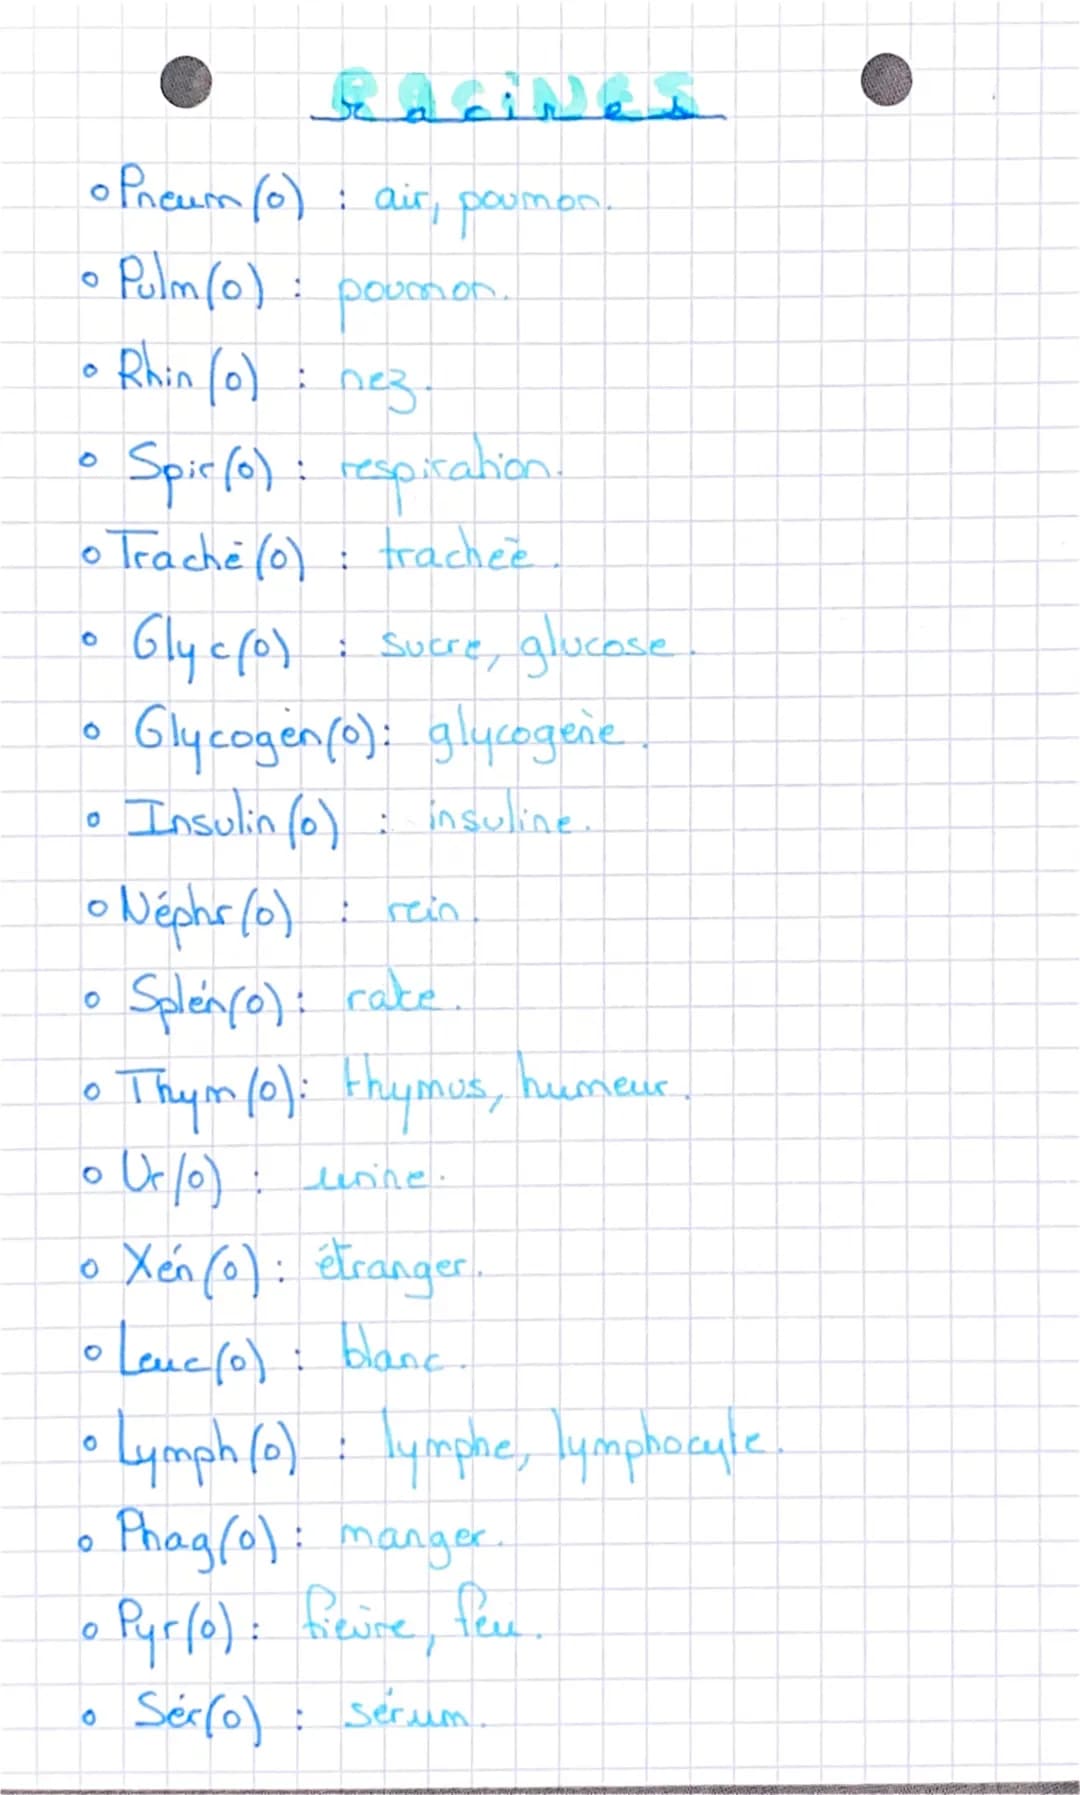 Racines
Pneum(o) : air, poumon.
Pulm(o) : poumon.
Rhin(o) : nez.
Spir(o) : respiration.
Traché(o) : trachée.
Glyc(o) : sucre, glucose.
Glycogèn(o) : glycogène.
Insulin(o) : insuline.
Néphr(o) : rein.
Splén(o) : rate.
Thym(o) : thymus, humeur.
Ur(o) : urine.
Xén(o) : étranger.
Leuc(o) : blanc.
Lymph(o) : lymphe, lymphocyte.
Phag(o) : manger.
Pyr(o) : fièvre, feu.
Sér(o) : sérum.